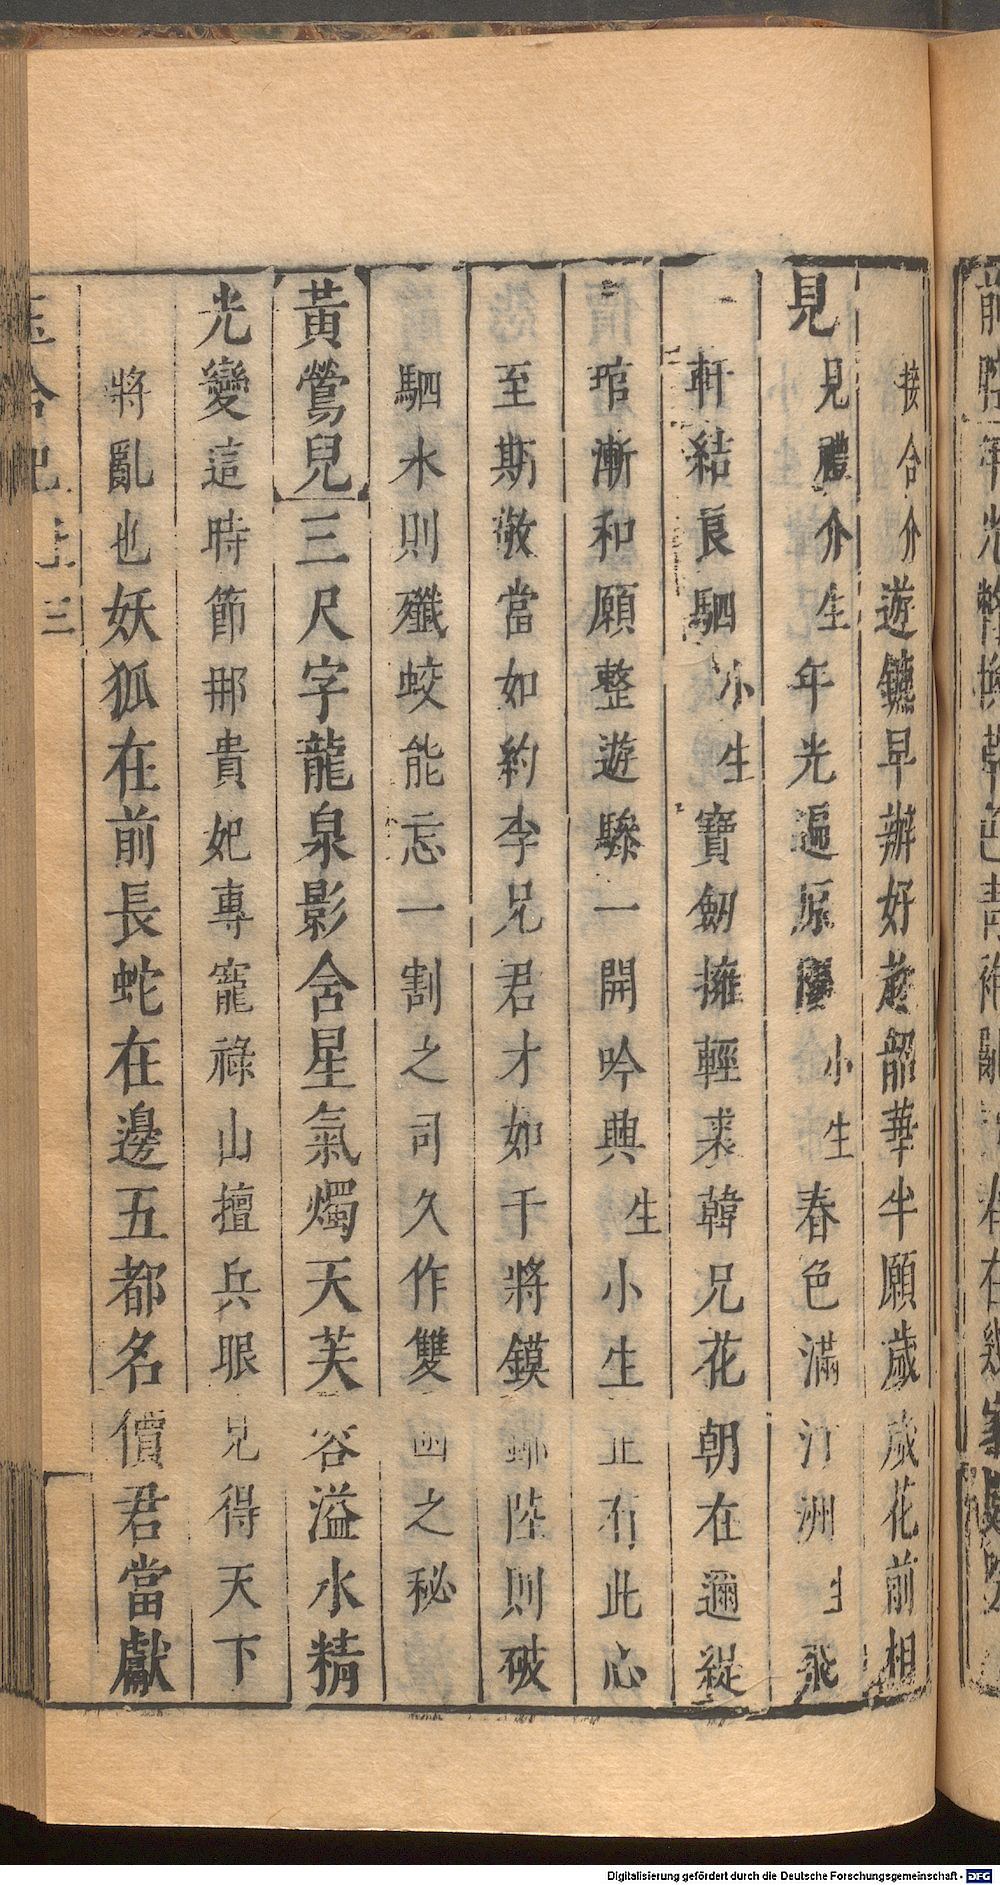 接合介遊鑣早辦好趂韶華半願歲歲花前相
見見禮介生年光遍原隰小生春色滿汀洲生飛
軒結良駟小生寶劒擁輕裘韓兄花朝在邇縱
琯漸和願整遊驂一開吟興生小生正有此心
至期敬當如約李兄君才如干將鏌鋣陸則破
駟水則殲蛟能忘一割之司久作雙函之秘
黃鶯兒三尺字龍泉影含星氣燭天芙容溢水精
光變這時節那貴妃專寵祿山擅兵眼見得天下
將亂也妖狐在前長蛇在邊五都名價君當獻
玉合記三
Digitalisierung gefördert durch die Deutsche Forschungsgemeinschaft - DFG